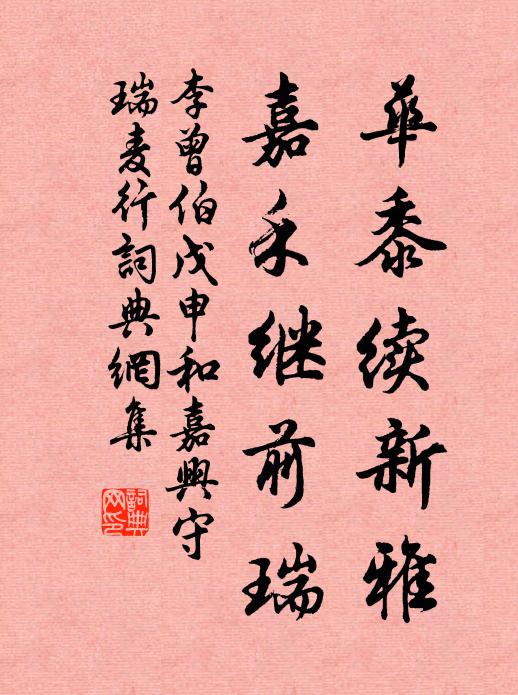 華黍续新雅
嘉禾继前瑞
李曾伯戊申和嘉興守
瑞麦行詞典網集
詞典網印